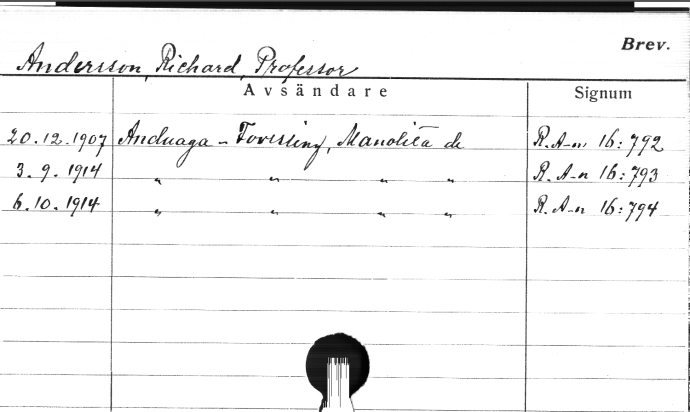 Brev.
Andersson, Richard, Professor
Avsändare Signum
20.12.1907 Anduaga - Forssling, Manolita de R. A-n 16:792
3.9.1914 " " " " R. A-n 16:793
6.10.1914 " " " " R. A-n 16:794